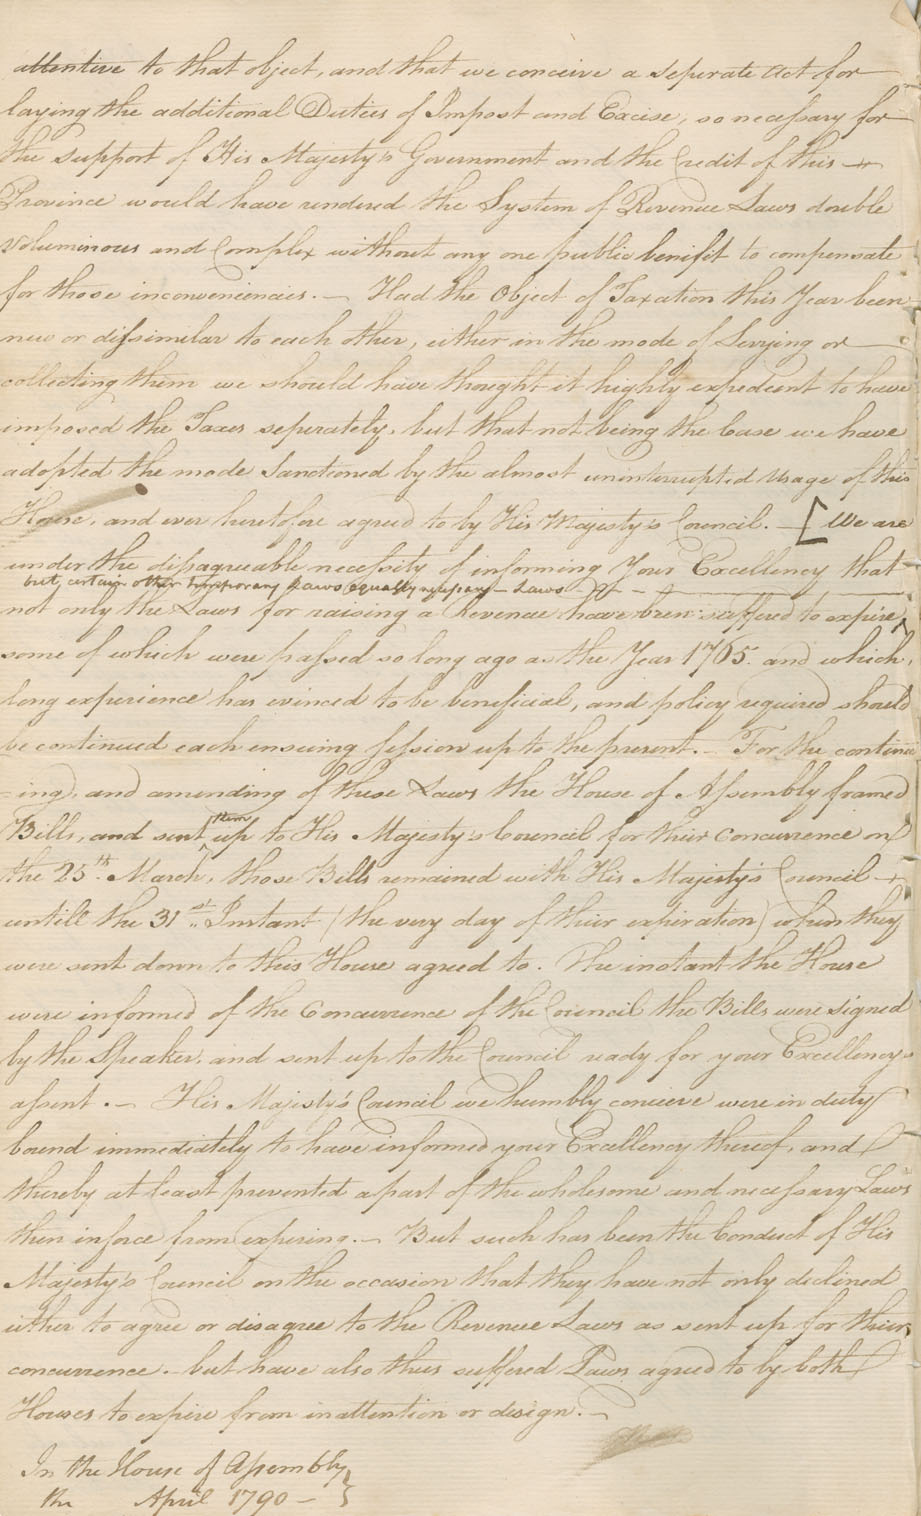 attentive to that object, and that we conceive a seperate act for
laying the additional Duties of Impost and Excise, so necessary for
the support of His Majesty's Government and the Credit of this
Province would have rendered the System of Revenue Laws double
voluminous and Complex without any one public benifit to compensate
for those inconveniencies. — Had the Object of Taxation this Year been
new or dissimilar to each other, either in the mode of Levying or
collecting them we should have thought it highly expedient to have
imposed the Taxes seperately, but that not being the Case we have
adopted the mode Sanctioned by the almost uninterrupted usage of this
House, and ever heretofore agreed to by His Majesty's Council. — [ We are
under the disagreeable necessity of informing Your Excellency that
but certain other temporary Laws equally necessary — Laws —
not only the Laws for raising a Revenue have been suffered to expire,
some of which were passed so long ago as the Year 1765. and which,
long experience has evinced to be beneficial, and policy required should
be continued each ensuing session up to the present. — For the continu
=ing, and amending of these Laws the House of Assembly framed
them
Bills, and sent ^ up to His Majesty's Council for their Concurrence on
the 25th. March, those Bills remained with His Majesty's Council —
untill the 31st Instant (the very day of their expiration) when they
were sent down to this House agreed to. The instant the House
were informed of the Concurrence of the Council the Bills were signed
by the Speaker, and sent up to the Council ready for your Excellency's
assent. — His Majesty's Council we humbly conceive were in duty
bound immediately to have informed your Excellency thereof, and
thereby at least prevented a part of the wholesome and necessary Laws
then inforce from expiring. — But such has been the Conduct of His
Majesty's Council on the occasion that they have not only declined
either to agree or disagree to the Revenue Laws as sent up for their
concurrence. but have also thus suffered Laws agreed to by both
Houses to expire from inattention or design. —
In the House of Assembly }
the April 1790 — }